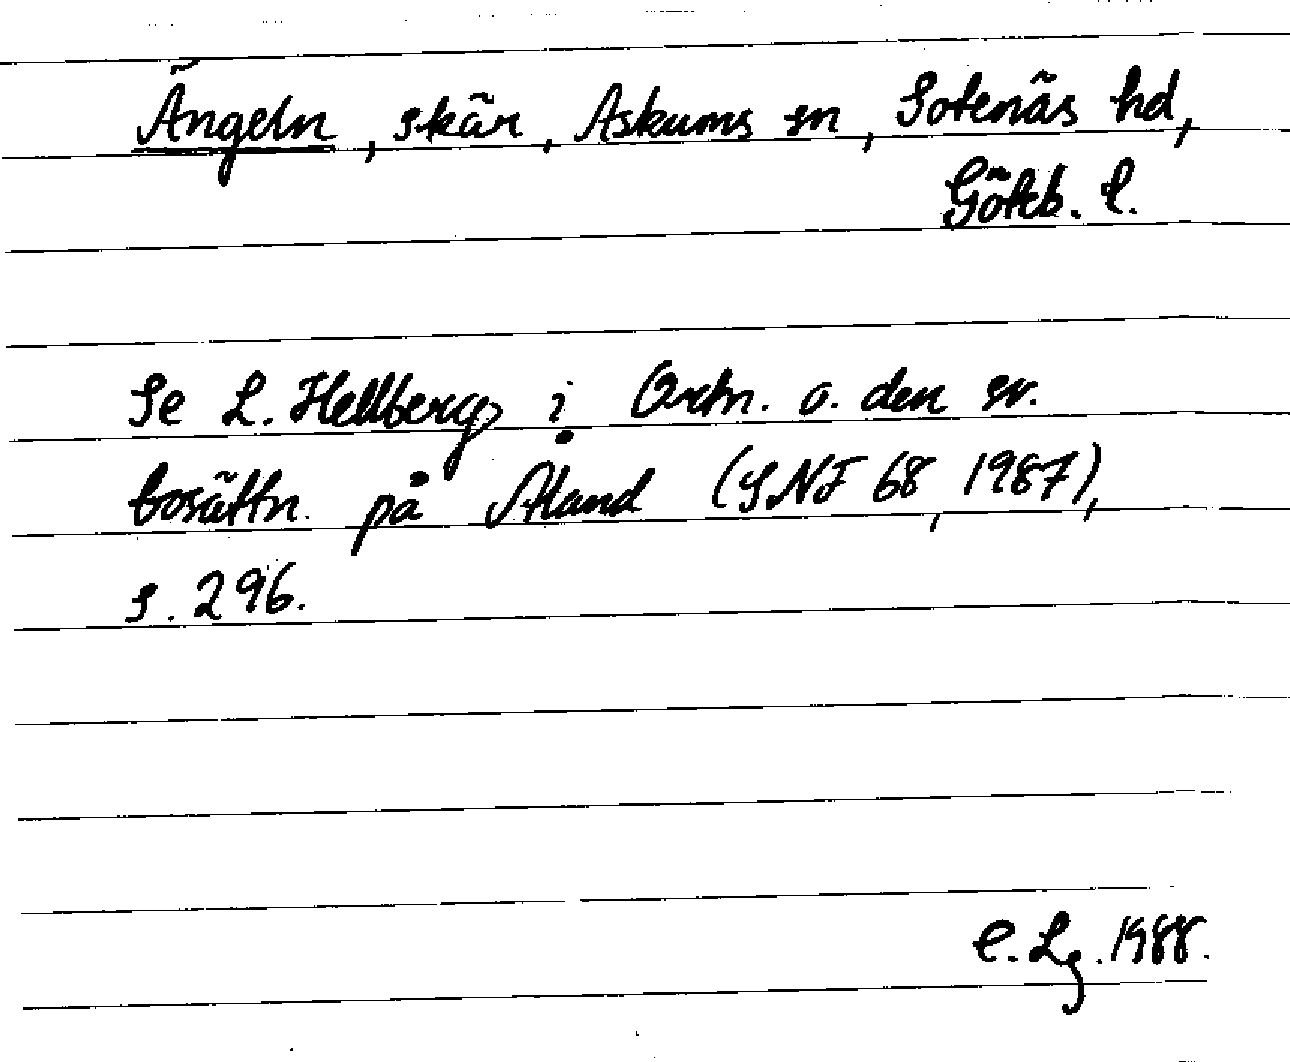 Ängeln, skär, Askums sn, Sotenäs hd,
Göteb. l.
Se L. Hellberg i Ortn. o. den sv.
bosättn. på Åland (SNF 68, 1987),
s. 296.
C. Lg. 1988.